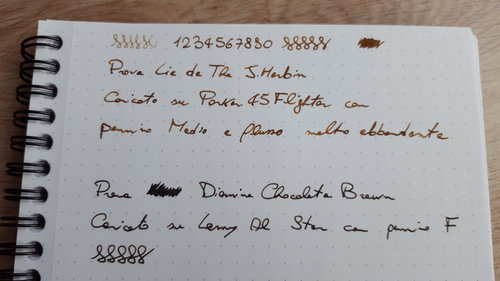 1234567890
Prova Lie de The J. Herbin
Caricato su Parker 45 Flighter con
pennino Medio e flusso molto abbondante
Prova Diamine Chocolate Brown
Caricato su Lamy Al Star con pennino F